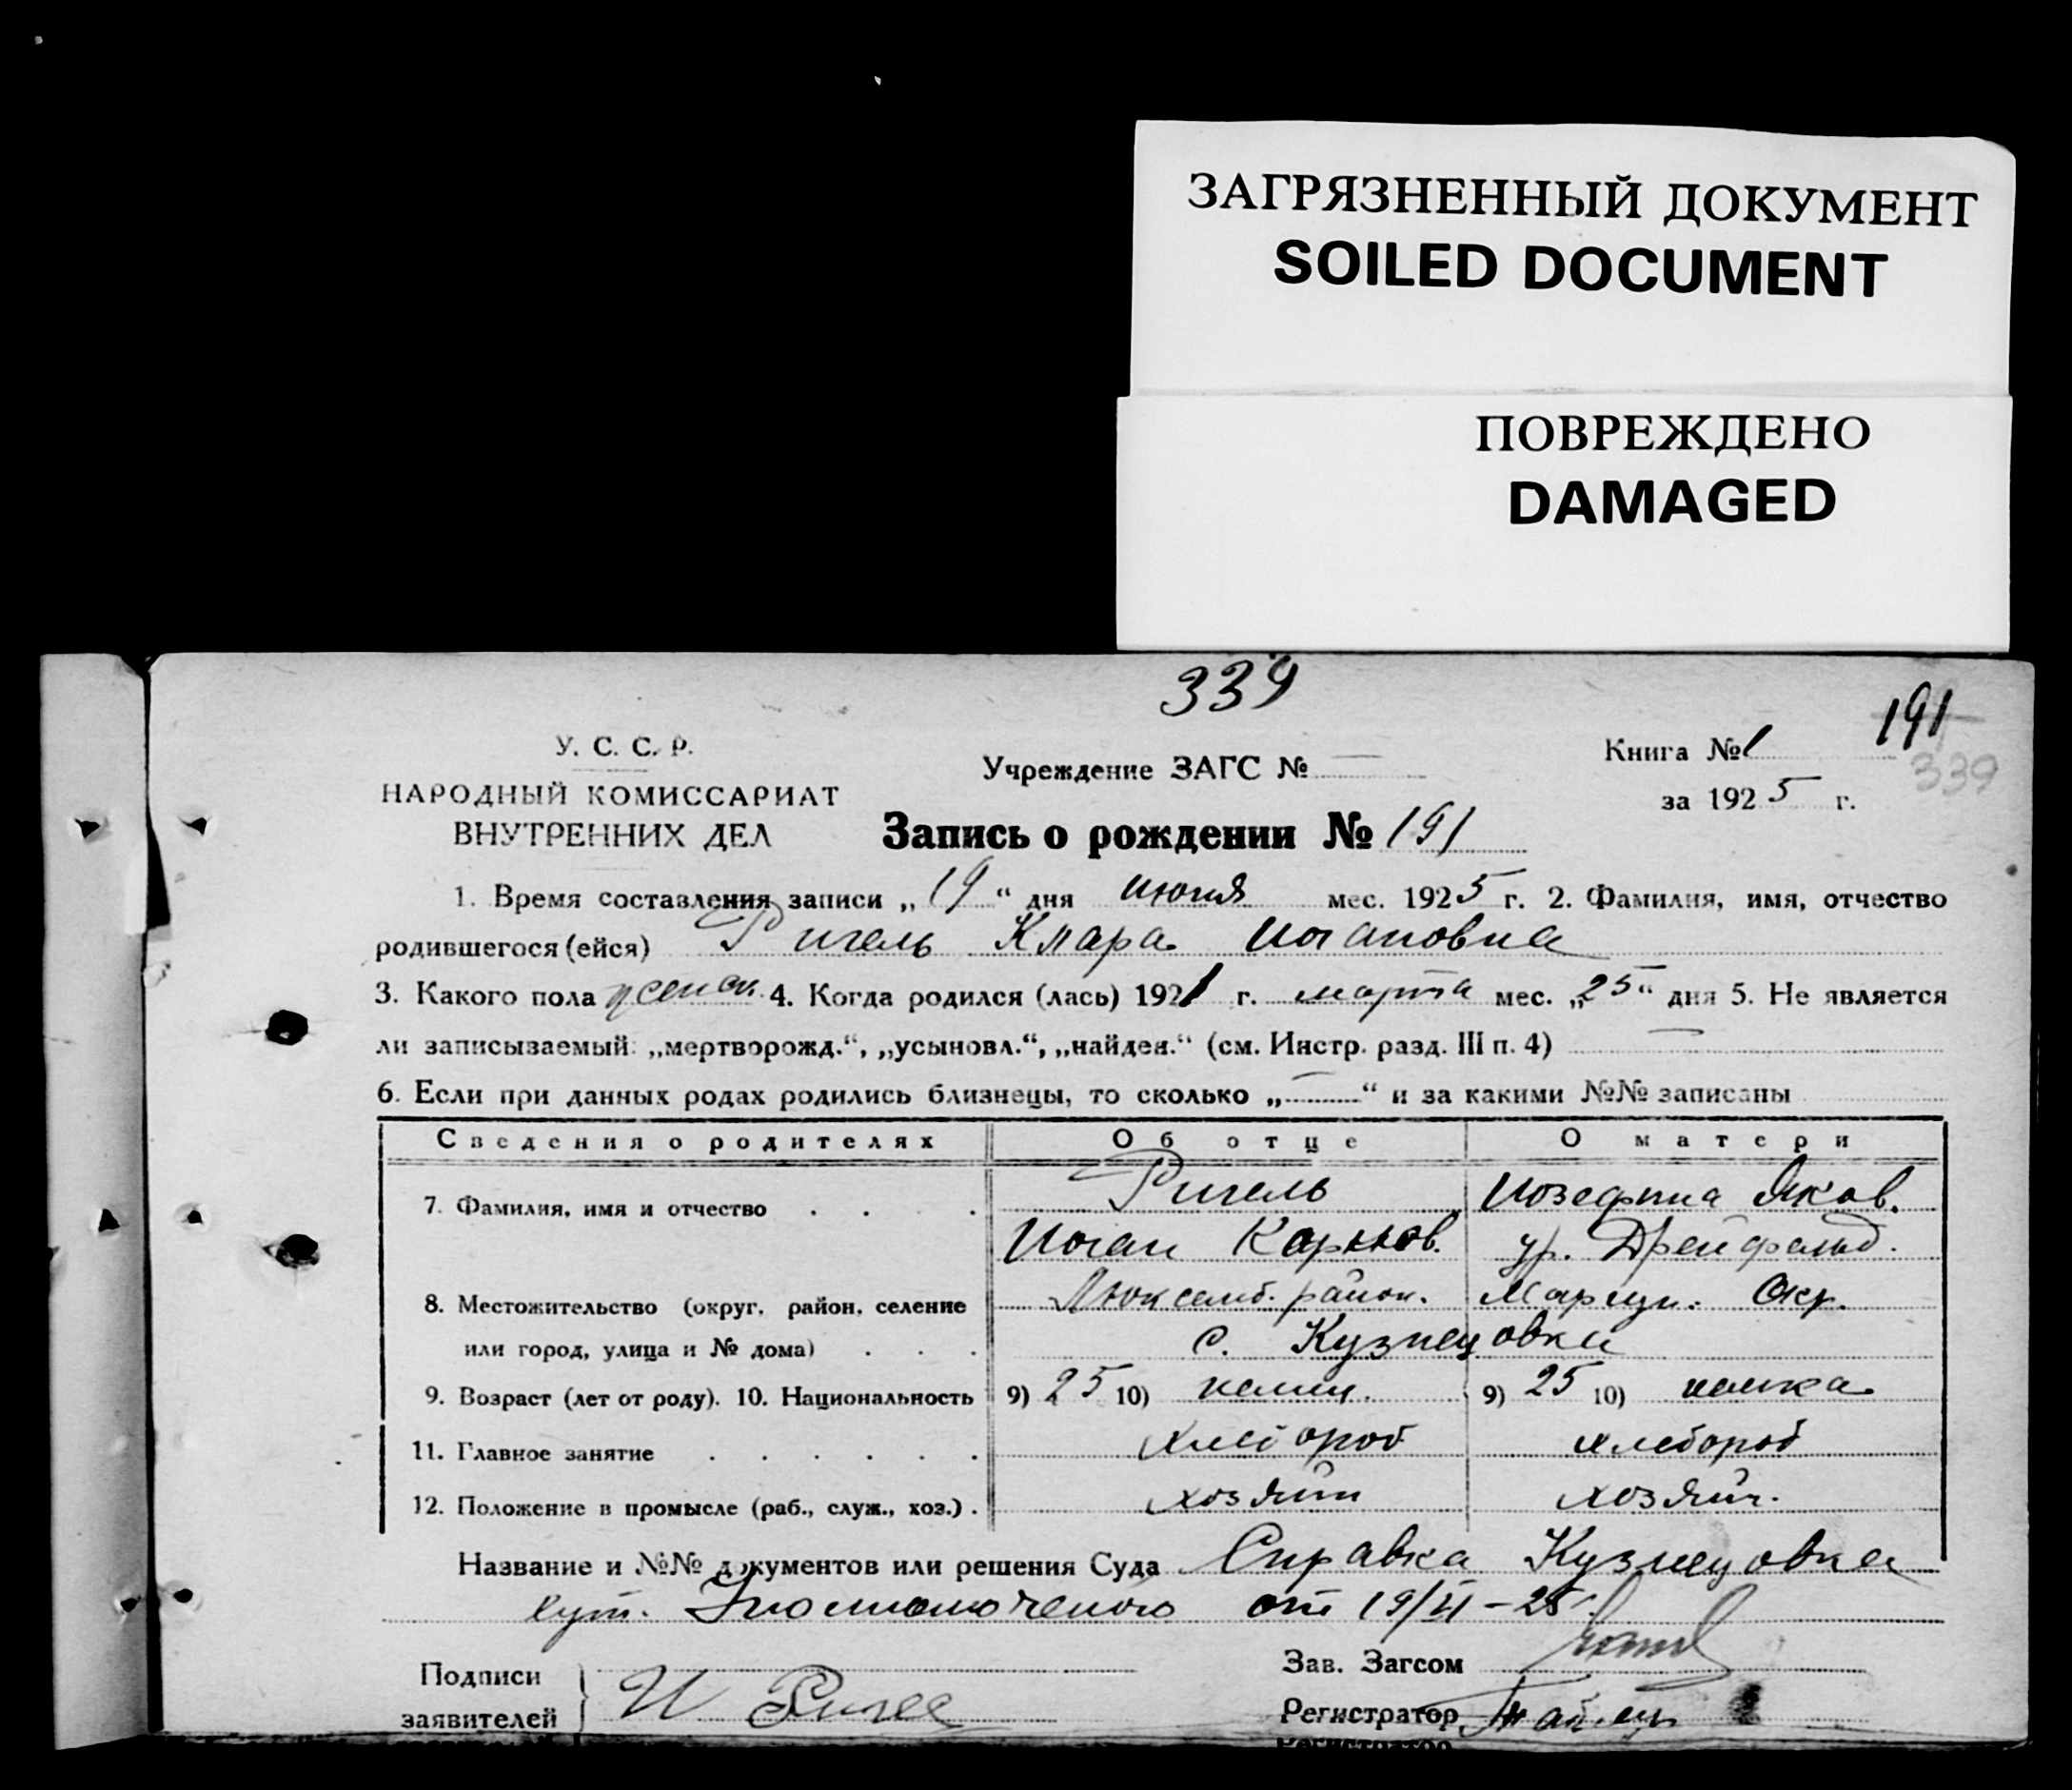 ЗАГРЯЗНЕННЫЙ ДОКУМЕНТ
SOILED DOCUMENT
ПОВРЕЖДЕНО
DAMAGED
339
191
У. С. С. Р.
НАРОДНЫЙ КОМИССАРИАТ
ВНУТРЕННИХ ДЕЛ
Учреждение ЗАГС №
Книга № 1
339
за 1925 г.
Запись о рождении № 191
1. Время составления записи „19“ дня июня мес. 1925 г. 2. Фамилия, имя, отчество
родившегося (ейся) Ригель Клара Иогановна
3. Какого пола женск. 4. Когда родился (лась) 1921 г. марта мес. „25“ дня 5. Не является
ли записываемый: „мертворожд.“, „усыновл.“, „найден.“ (см. Инстр. разд. III п. 4) —
6. Если при данных родах родились близнецы, то сколько „—“ и за какими №№ записаны
Сведения о родителях Об отце О матери
7. Фамилия, имя и отчество Ригель Иозефина Яков.
Иоган Карлов. ур. Дрейфельд.
8. Местожительство (округ, район, селение Люксемб. район. Мариуп. Окр.
или город, улица и № дома) с. Кузнецовка
9. Возраст (лет от роду). 10. Национальность 9) 25 10) немец. 9) 25 10) немка
11. Главное занятие хлебороб хлебороб
12. Положение в промысле (раб., служ., хоз.) хозяин хозяин.
Название и №№ документов или решения Суда Справка Кузнецовка
хут. Уполномоченого от 19/VI – 25
Подписи
заявителей И Ригел
Зав. Загсом
Регистратор
Регистратор